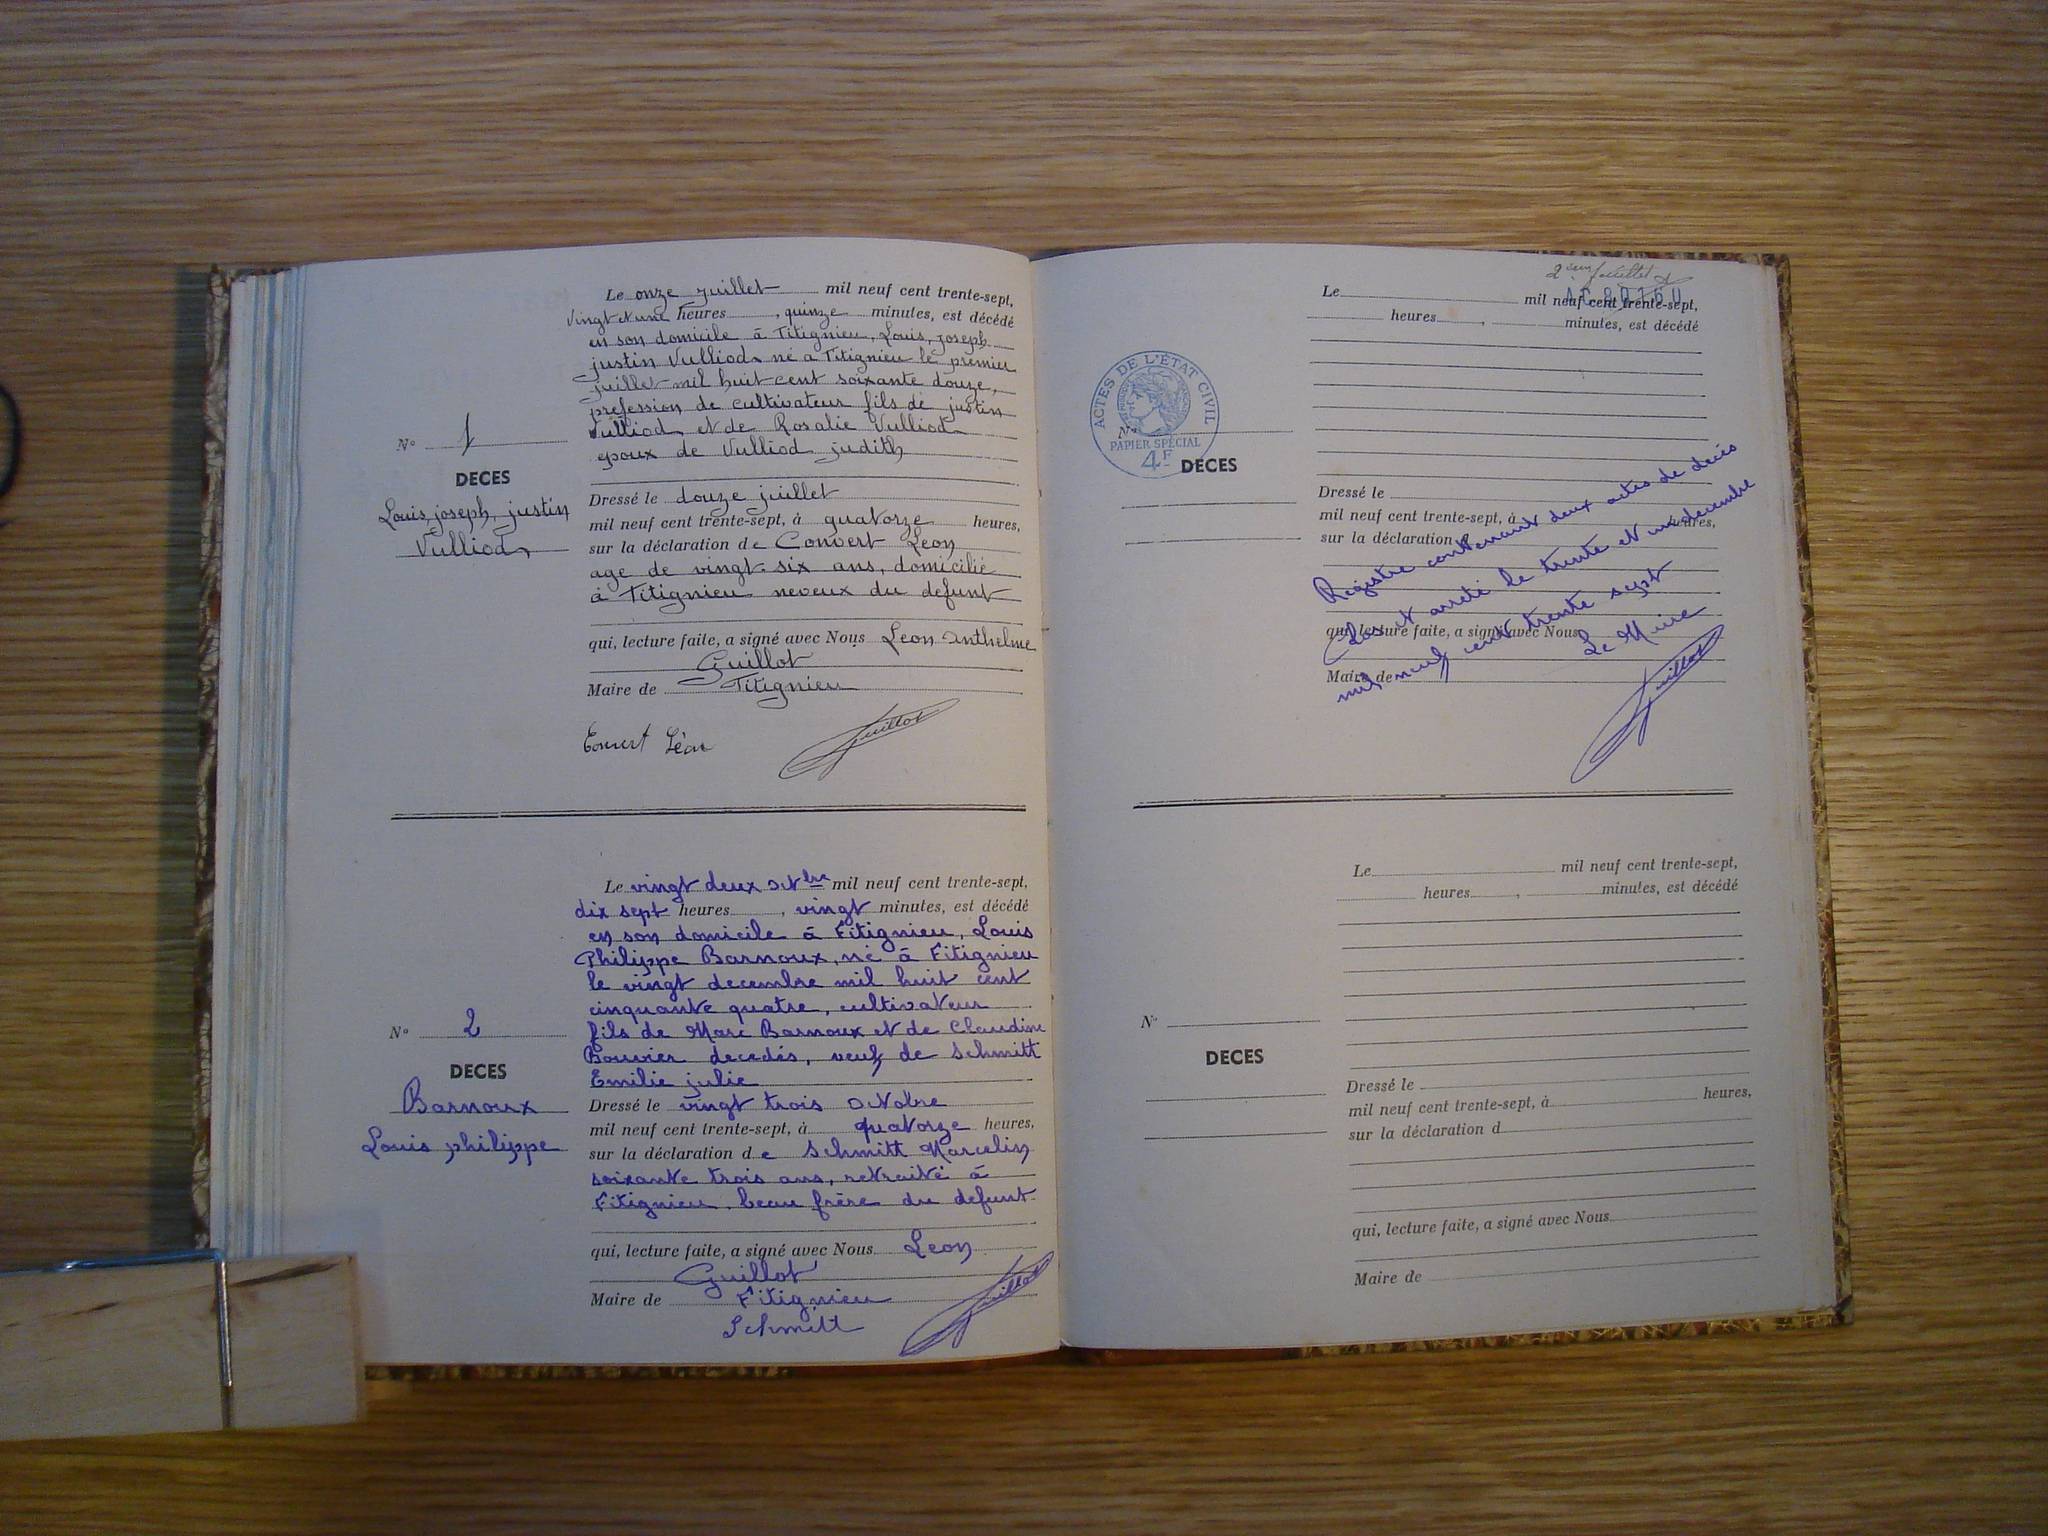 Le onze juillet mil neuf cent trente-sept,
vingt et une heures, quinze minutes, est décédé
en son domicile à Fitignieu, Louis, joseph
justin Vulliod né à Fitignieu le premier
juillet mil huit cent soixante douze,
profession de cultivateur fils de justin
Vulliod et de Rosalie Vulliod
epoux de Vulliod judith
N° 1
DECES
Louis, joseph, justin
Vulliod
Dressé le douze juillet
mil neuf cent trente-sept, à quatorze heures,
sur la déclaration de Convert Leon
age de vingt six ans, domicilié
à Fitignieu neveux du defunt
qui, lecture faite, a signé avec Nous Leon Anthelme
Guillot
Maire de Fitignieu
Convert Léon Guillot
Le vingt deux octbre mil neuf cent trente-sept,
dix sept heures, vingt minutes, est décédé
en son domicile à Fitignieu, Louis
Philippe Barnoux, né à Fitignieu
le vingt decembre mil huit cent
cinquante quatre, cultivateur
fils de Marc Barnoux et de Claudine
Bouvier decedés, veuf de Schmitt
Emilie julie
N° 2
DECES
Barnoux
Louis philippe
Dressé le vingt trois octobre
mil neuf cent trente-sept, à quatorze heures,
sur la déclaration de Schmitt Marcelin
soixante trois ans, retraité à
Fitignieu beau frère du defunt
qui, lecture faite, a signé avec Nous Leon
Guillot
Maire de Fitignieu
Schmitt Guillot
2ème feuillet
Le mil neuf cent trente-sept,
heures, minutes, est décédé
ACTES DE L'ÉTAT CIVIL
PAPIER SPÉCIAL
4F
N°
DECES
Dressé le
mil neuf cent trente-sept, à heures,
sur la déclaration d
qui, lecture faite, a signé avec Nous
Maire de
Registre contenant deux actes de decès
Clos et arrêté le trente et un decembre
mil neuf cent trente sept
Le Maire
Guillot
Le mil neuf cent trente-sept,
heures, minutes, est décédé
N°
DECES
Dressé le
mil neuf cent trente-sept, à heures,
sur la déclaration d
qui, lecture faite, a signé avec Nous
Maire de